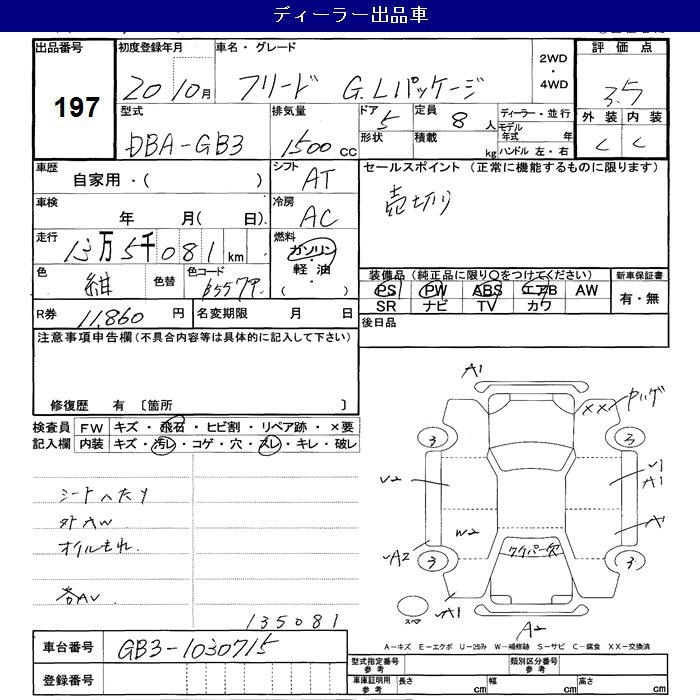 ディーラー出品車
出品番号 初度登録年月 車名・グレード 2WD ・ 4WD 評価点
197 20 10月 フリード G.Lパッケージ 3.5
型式 排気量 ドア 5 定員 8人 ディーラー・並行 外装 内装
DBA-GB3 1500cc 形状 積載 kg モデル年式 年 ハンドル 左・右 C C
車歴 自家用・( ) シフト AT セールスポイント (正常に機能するものに限ります)
車検 年 月( 日) 冷房 AC 売切り
走行 13万5千081km 燃料 ガソリン・軽油・( )
色 紺 色替 色コード B557P 装備品 (純正品に限り○をつけてください) 新車保証書
PS PW ABS エアB AW 有・無
SR ナビ TV カワ
R券 11,860円 名変期限 月 日 後日品
注意事項申告欄 (不具合内容等は具体的に記入して下さい)
修復歴 有 〔箇所 〕
検査員 FW キズ・飛石・ヒビ割・リペア跡・×要
記入欄 内装 キズ・汚レ・コゲ・穴・スレ・キレ・破レ
シートヘたり
外AW
オイルもれ
各AU
135081
A1
XX ヤハゲ
3 3
U2 U1
A1
W2 A
ワイパー欠
A2 3 3
スペア A1
A2
A-キズ E-エクボ U-凹み W-補修跡 S-サビ C-腐食 XX-交換済
車台番号 GB3-1030715
型式指定番号 参考 類別区分番号 参考
登録番号 車庫証明用 参考 長さ cm 幅 cm 高さ cm